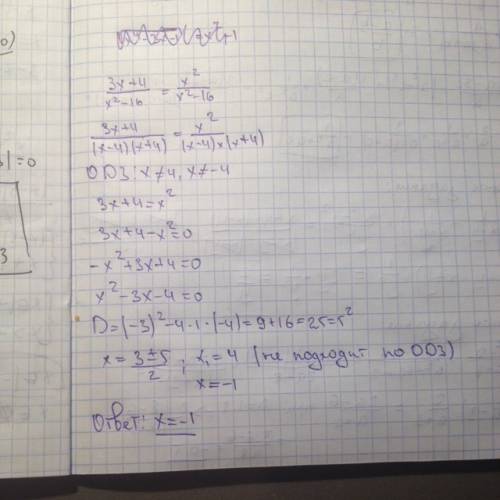 3x+4 / x²-16 = x² / x²-16
3x+4 / (x-4)(x+4) = x² / (x-4)x(x+4)
ОДЗ: x≠4, x≠-4
3x+4=x²
3x+4-x²=0
-x²+3x+4=0
x²-3x-4=0
D=(-3)²-4·1·(-4)=9+16=25=5²
x= 3±5 / 2 ; x₁=4 (не подходит по ОДЗ)
x=-1
Ответ: x=-1
0)
|=0
3